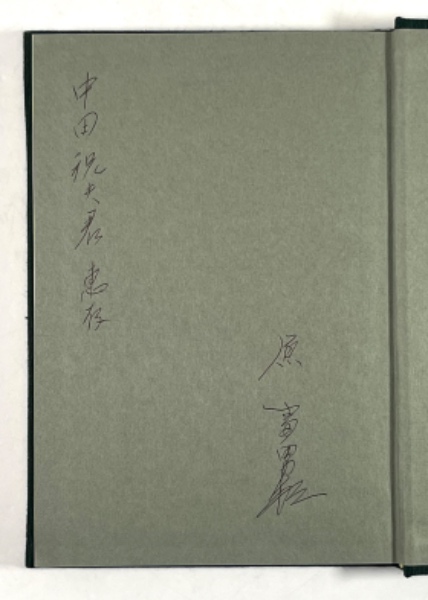 中田祝夫君 恵存
原 富男